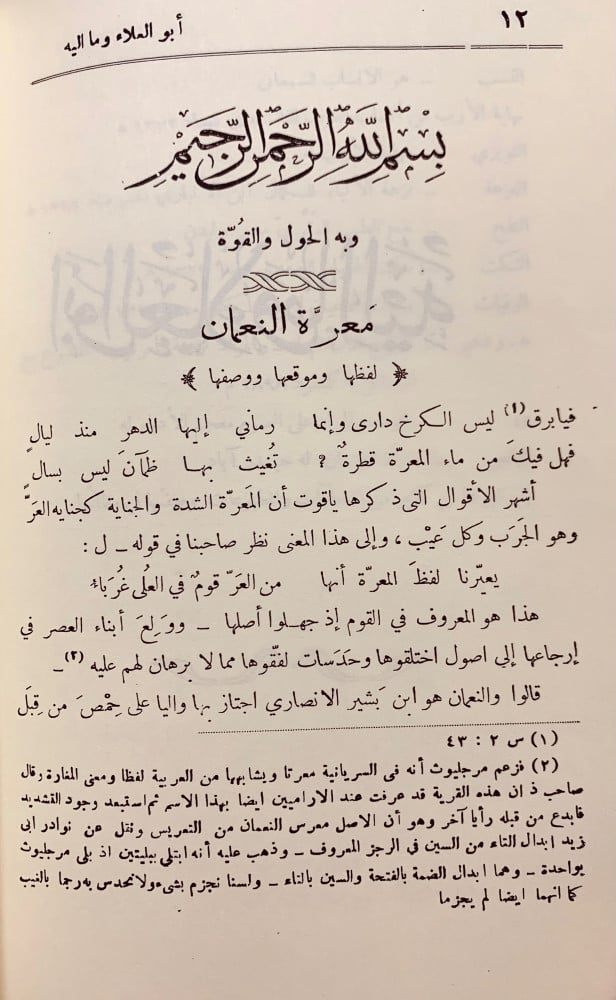 ١٢
أبو العلاء وما اليه
بِسْمِ اللَّهِ الرَّحْمٰنِ الرَّحِيمِ
وبه الحول والقوّة
مَعرَّة النعمان
﴿ لفظها وموقعها ووصفها ﴾
فيابرق(١) ليس الكرخ دارى وإنما رماني إليها الدهر منذ ليالٍ
فهل فيكَ من ماء المعرّة قطرةٌ ؟ تُغيث بها ظمآنَ ليس بسالٍ
أشهر الأقوال التى ذكرها ياقوت أن المَعرّة الشدة والجناية كجنايه العَرّ
وهو الجَرَب وكل عَيْب ، وإلى هذا المعنى نظر صاحبنا في قوله ــ ل :
يعيّرنا لفظَ المعرّة أنها من العَرّ قومٌ في العُلى غُرَباءُ
هذا هو المعروف في القوم إذ جهلوا أصلها ــ ووَلِعَ أبناء العصر في
إرجاعها إلى اصول اختلقوها وحَدَسات لفّقوها مما لا برهان لهم عليه (٢) ــ
قالوا والنعمان هو ابن بَشير الانصاري اجتاز بها واليا على حِمْصَ من قِبَل
(١) س ٢ : ٤٣
(٢) فزعم مرجليوث أنه فى السريانية معرتا ويشابهها من العربية لفظا ومعنى المغارة وقال
صاحب ذ ان هذه القرية قد عرفت عند الاراميين ايضا بهذا الاسم ثم استبعد وجود التشديد
فابدع من قبله رأيا آخر وهو أن الاصل معرس النعمان من التعريس ونقل عن نوادر ابى
زيد ابدال التاء من السين في الرجز المعروف ــ وذهب عليه أنه ابتلى ببليتين اذ بلى مرجليوث
بواحدة ــ وهما ابدال الضمة بالفتحة والسين بالتاء ــ ولسنا نجزم بشىء ولا نحدس به رجما بالغيب
كما انهما ايضا لم يجزما